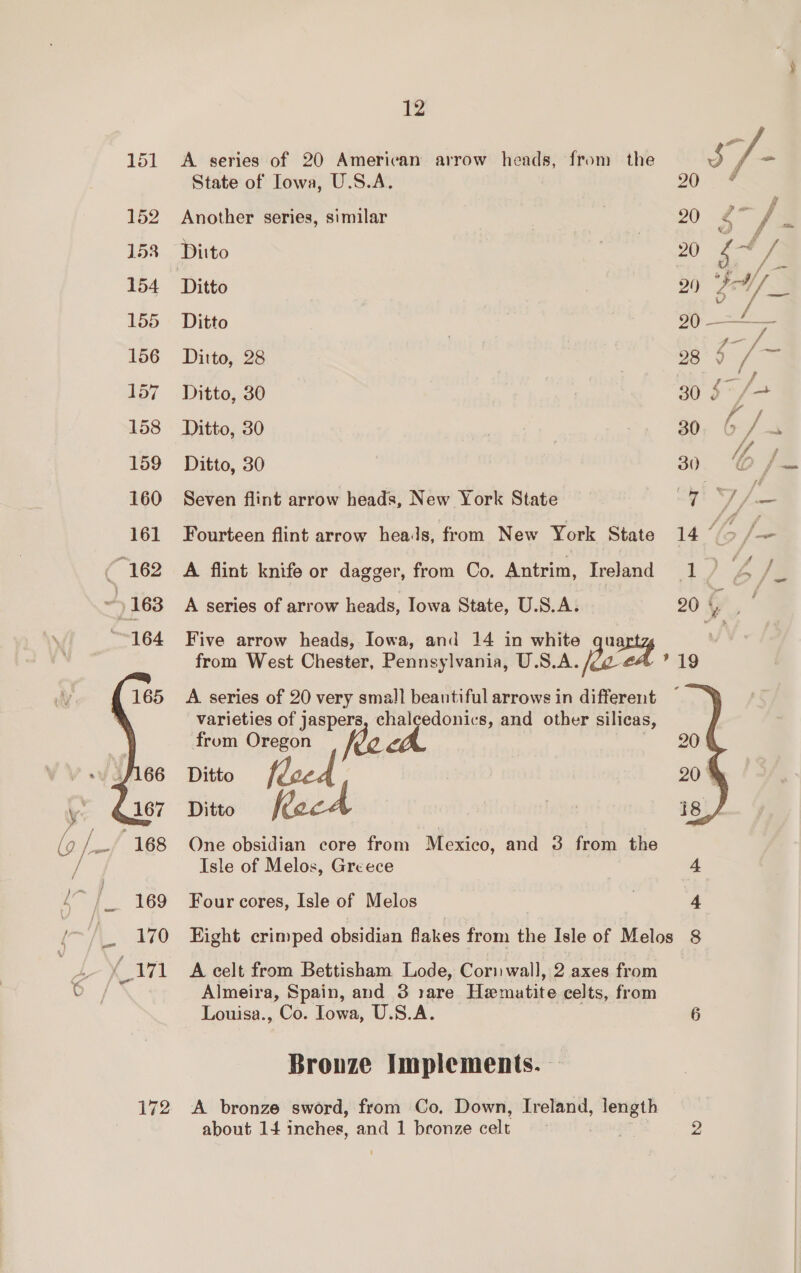 12
151 A series of 20 American arrow heads, from the
State of Iowa, U.S.A. 20 5/-
152 Another series, similar 20 5/-
153 Ditto 20 5/-
154 Ditto 20 5/-
155 Ditto 20
156 Ditto, 28 28 5/-
157 Ditto, 30 30 5/-
158 Ditto, 30 30 6/-
159 Ditto, 30 30 6/-
160 Seven flint arrow heads, New York State 7 7/-
161 Fourteen flint arrow heads, from New York State 14 6/-
162 A flint knife or dagger, from Co. Antrim, Ireland 1
163 A series of arrow heads, Iowa State, U.S.A. 20
164 Five arrow heads, Iowa, and 14 in white quartz
from West Chester, Pennsylvania, U.S.A. 19
165 A series of 20 very small beautiful arrows in different
varieties of jaspers, chalcedonics, and other silicas,
from Oregon 20
166 Ditto 20
167 Ditto 18
6/- 168 One obsidian core from Mexico, and 3 from the
Isle of Melos, Greece 4
5/- 169 Four cores, Isle of Melos 4
5/- 170 Eight crimped obsidian flakes from the Isle of Melos 8
171 A celt from Bettisham Lode, Cornwall, 2 axes from
Almeira, Spain, and 3 rare Hæmatite celts, from
Louisa., Co. Iowa, U.S.A. 6
Bronze Implements.
172 A bronze sword, from Co. Down, Ireland, length
about 14 inches, and 1 bronze celt 2